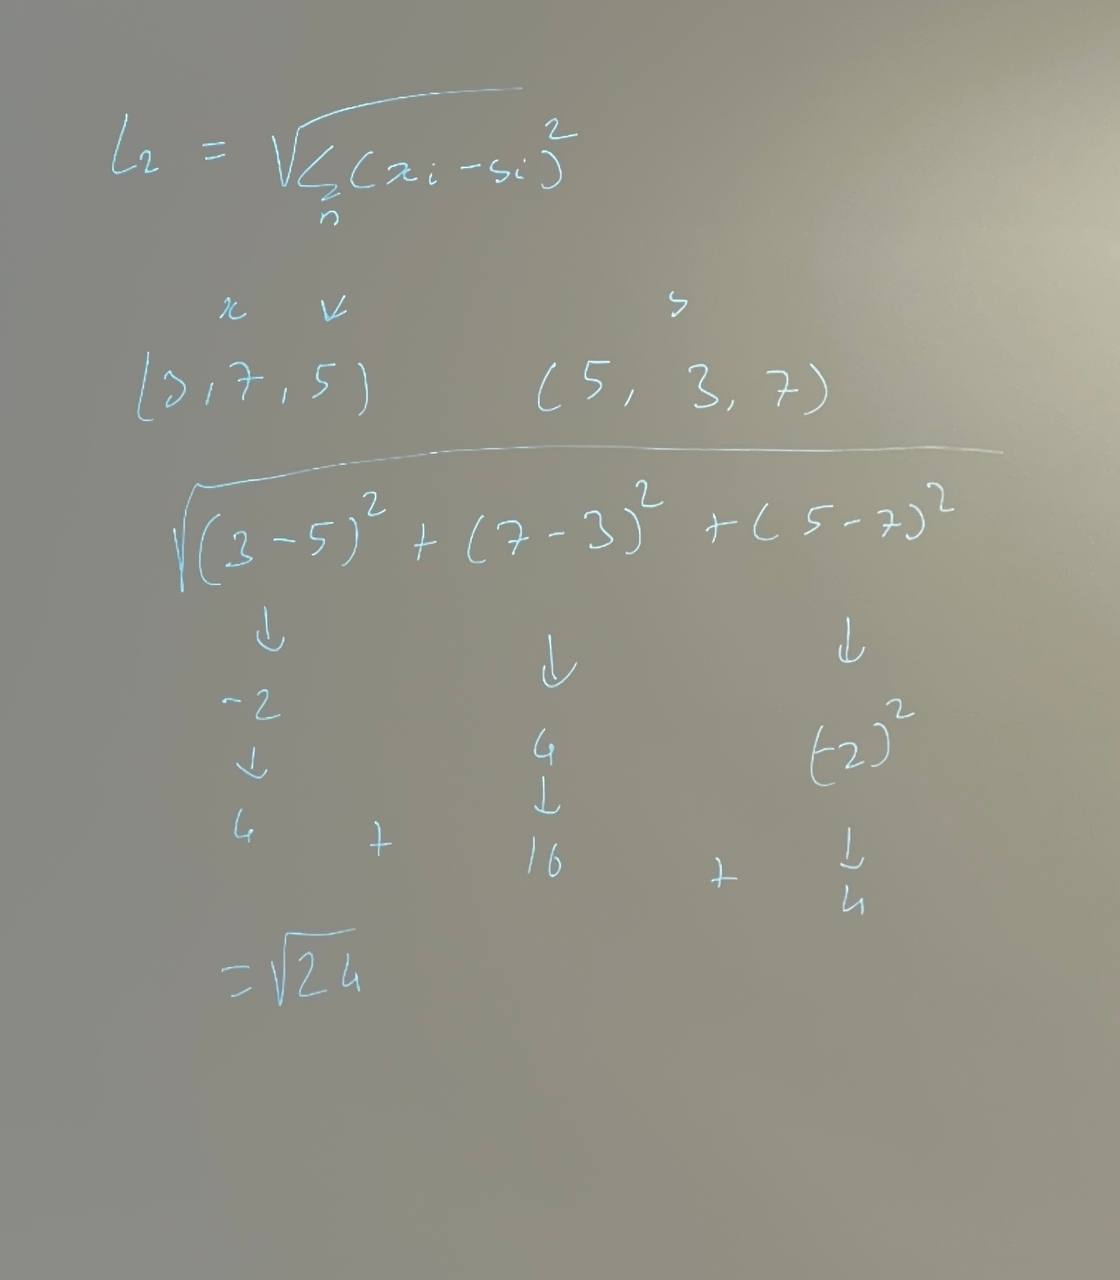 L₂ = √Σₙ(xi - si)²
x v s
(3, 7, 5) (5, 3, 7)
√(3-5)² + (7-3)² + (5-7)²
↓ ↓ ↓
-2 4 (-2)²
↓ ↓ ↓
4 + 16 + 4
= √24